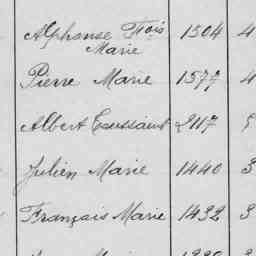 Alphonse Fçois 1504 4
Marie
Pierre Marie 1577 4
Albert Toussaint 2117
Julien Marie 1440 3
François Marie 1432 3